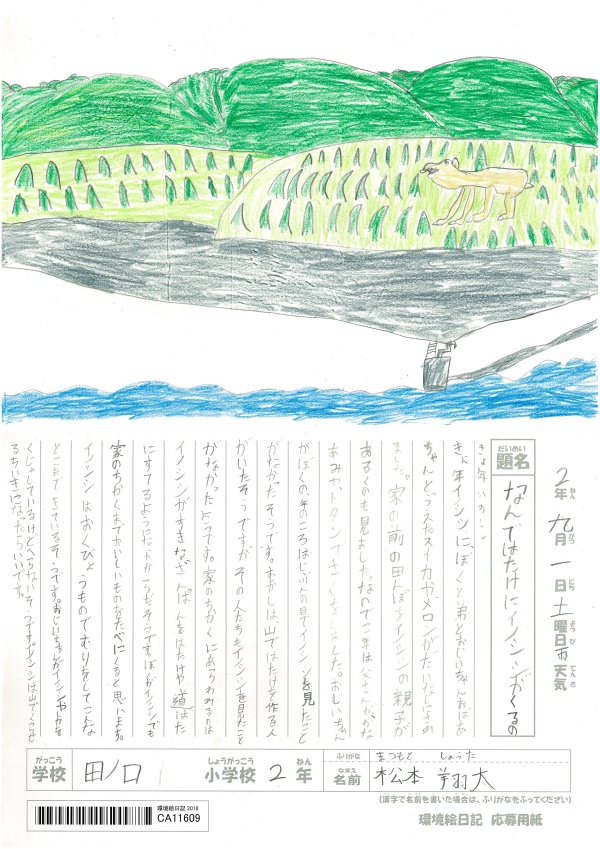 2年 九月 一日 土曜日 雨 天気
ねん がつ にち ようび てんき
だいめい
題名
なんではたけにイノシシがくるの
きょ年イノシシに、ぼくと弟とおじいちゃんおばあ
ちゃんとでうえたスイカやメロンがだいなしにされ
ました。家の前の田んぼをイノシシの親子が
あるくのも見ました。なので今年は父さんがかな
あみや、トタンでさくをしました。おじいちゃん
がぼくの年のころはじぶんの目でイノシシを見たこと
がなかったそうです。むかしは山ではたけを作る人
がいたそうですがその人たちもイノシシを見たこと
がなかったようです。家のちかくにあらわれるのは
イノシシがすきなざんぱんをはたけや道ばた
にすてるようになったからだそうです。ぼくがイノシシでも
家のちかくにおいておいしいものをたべにくると思います。
イノシシはおくびょうものでむりをしてこんな
ところまできているそうです。おじいちゃんがイノシシやシカを
くじょしているけどへらないそうです。イノシシは山でくらせ
るちいきになったらいいです。
がっこう
学校
田ノ口
しょうがっこう
小学校
2
ねん
年
ふりがな
まつもと しょうた
なまえ
名前
松本 翔大
(漢字で名前を書いた場合は、ふりがなをふってください)
環境絵日記 2018
CA11609
環境絵日記 応募用紙